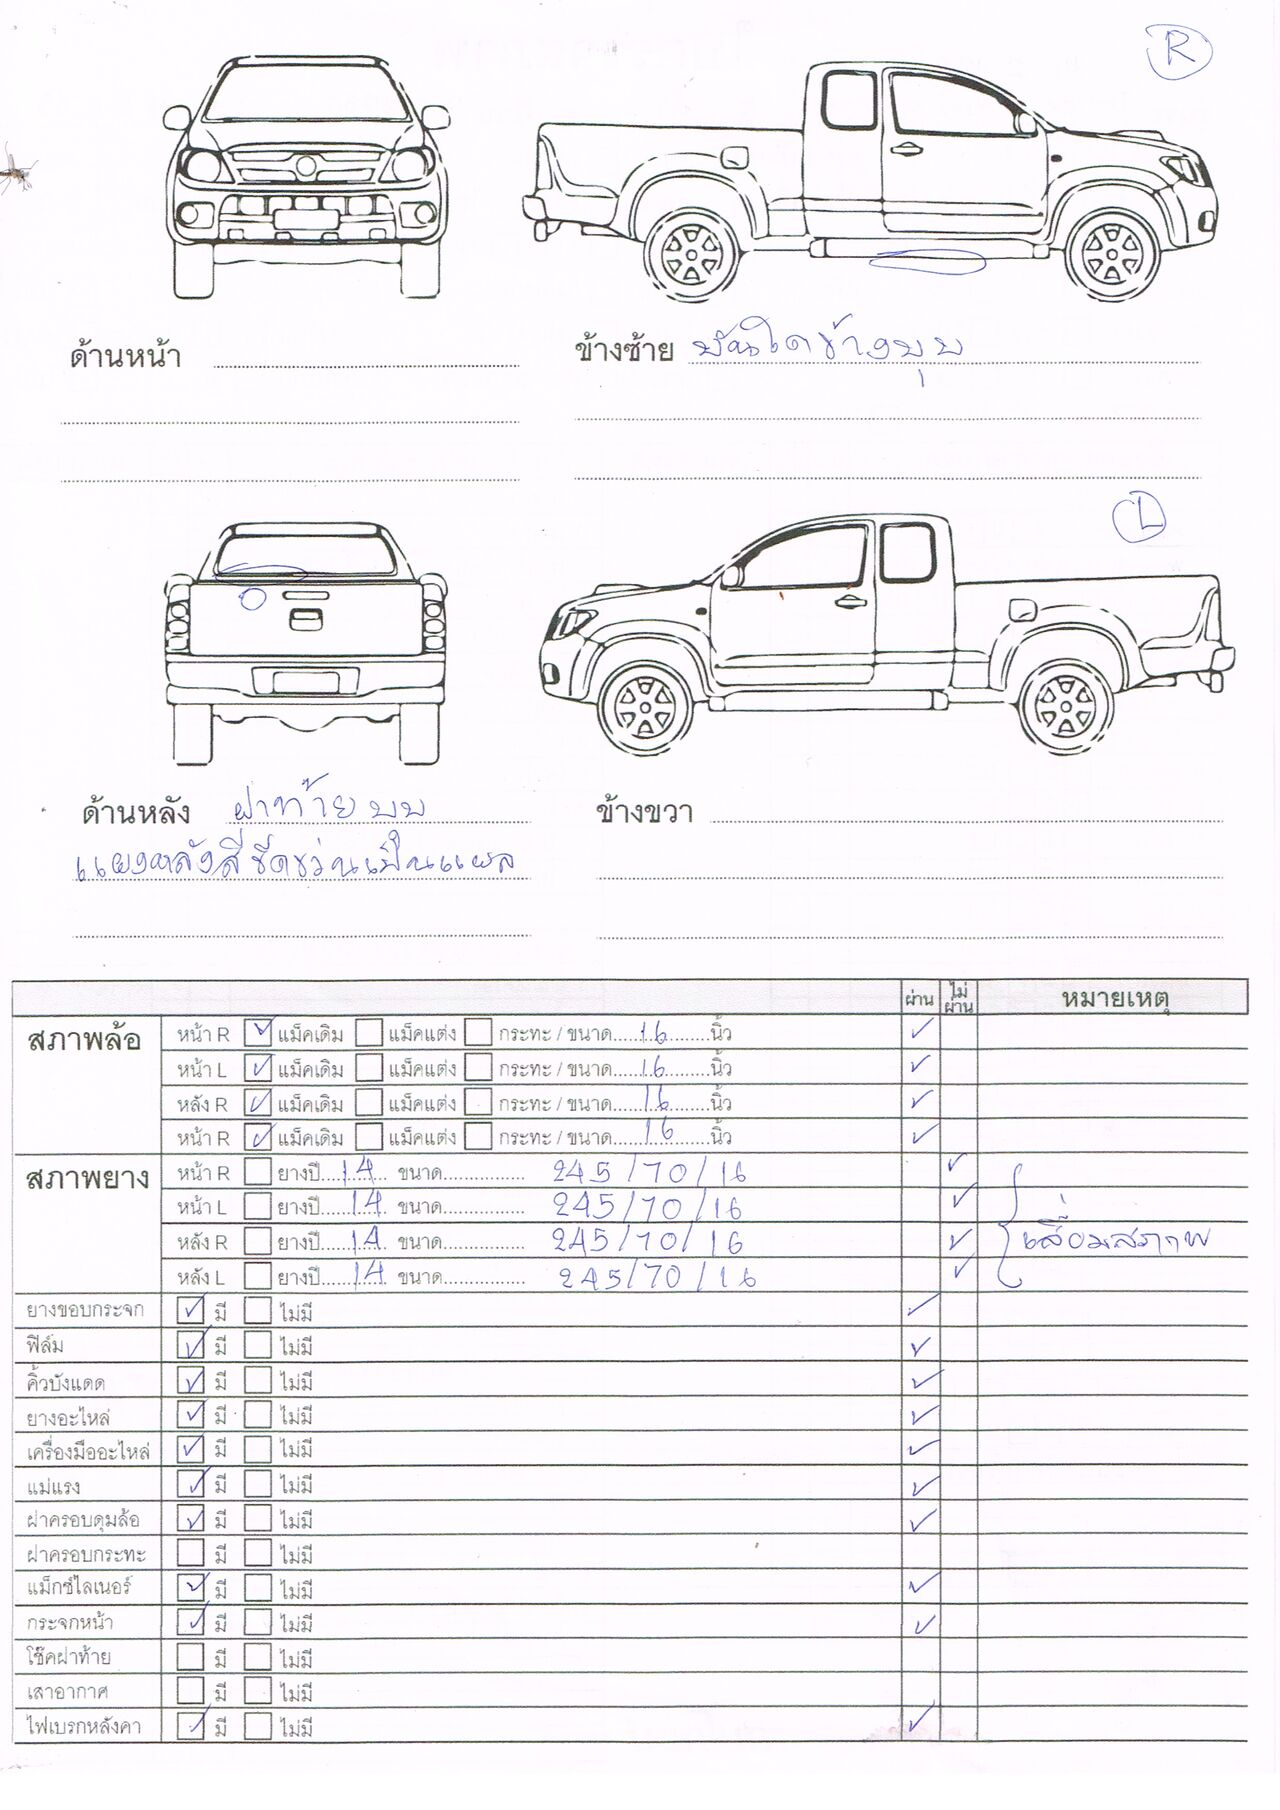 R
ด้านหน้า
ข้างซ้าย บันไดข้างบุบ
L
ด้านหลัง ฝาท้ายบุบ
แผงหลังสีขีดข่วนเป็นแผล
ข้างขวา
ผ่าน ไม่ผ่าน หมายเหตุ
สภาพล้อ หน้า R ✓ แม็คเดิม แม็คแต่ง กระทะ / ขนาด 16 นิ้ว ✓
หน้า L ✓ แม็คเดิม แม็คแต่ง กระทะ / ขนาด 16 นิ้ว ✓
หลัง R ✓ แม็คเดิม แม็คแต่ง กระทะ / ขนาด 16 นิ้ว ✓
หน้า R ✓ แม็คเดิม แม็คแต่ง กระทะ / ขนาด 16 นิ้ว ✓
สภาพยาง หน้า R ยางปี 14 ขนาด 245/70/16 ✓
หน้า L ยางปี 14 ขนาด 245/70/16 ✓
หลัง R ยางปี 14 ขนาด 245/70/16 ✓ เสื่อมสภาพ
หลัง L ยางปี 14 ขนาด 245/70/16 ✓
ยางขอบกระจก ✓ มี ไม่มี ✓
ฟิล์ม ✓ มี ไม่มี ✓
คิ้วบังแดด ✓ มี ไม่มี ✓
ยางอะไหล่ ✓ มี ไม่มี ✓
เครื่องมืออะไหล่ ✓ มี ไม่มี ✓
แม่แรง ✓ มี ไม่มี ✓
ฝาครอบดุมล้อ ✓ มี ไม่มี ✓
ฝาครอบกระทะ มี ไม่มี
แม็กซ์ไลเนอร์ ✓ มี ไม่มี ✓
กระจกหน้า ✓ มี ไม่มี ✓
โช๊คฝาท้าย มี ไม่มี
เสาอากาศ มี ไม่มี
ไฟเบรกหลังคา ✓ มี ไม่มี ✓